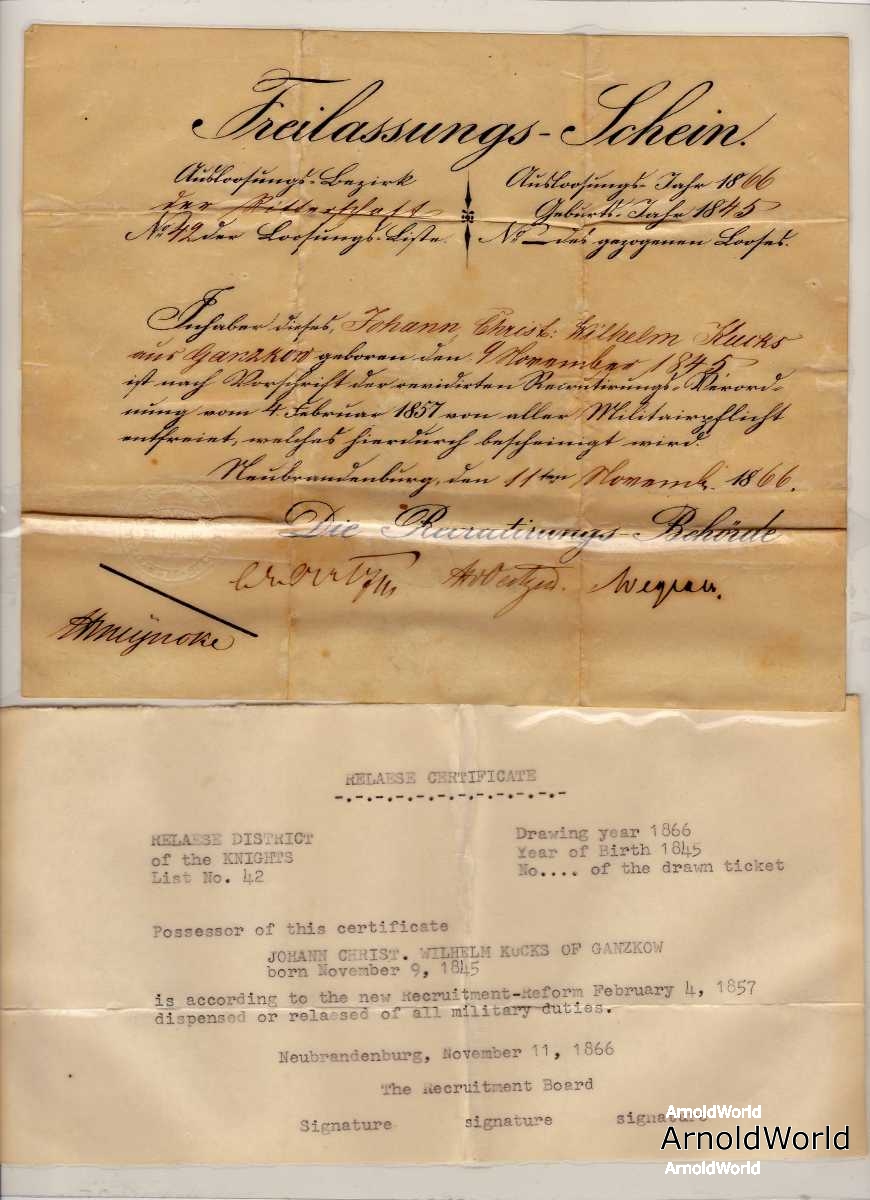 Freilassungs-Schein.
Ausloosungs-Bezirk
der Ritterschaft
No. 42 der Loosungs-Liste.
Ausloosungs-Jahr 1866
Geburts-Jahr 1845
No. — des gezogenen Looses.
Inhaber dieses, Johann Christ: Wilhelm Kucks
aus Ganzkow geboren den 9 November 1845
ist nach Vorschrift der revidirten Recrutirungs-Verord-
nung vom 4. Februar 1857 von aller Militairpflicht
entfreiet, welches hierdurch bescheinigt wird.
Neubrandenburg, den 11ten Novemb. 1866.
Die Recrutirungs-Behörde
RELAESE CERTIFICATE
-.-.-.-.-.-.-.-.-.-.-.-
RELAESE DISTRICT
of the KNIGHTS
List No. 42
Drawing year 1866
Year of Birth 1845
No.... of the drawn ticket
Possessor of this certificate
JOHANN CHRIST. WILHELM KUCKS OF GANZKOW
born November 9, 1845
is according to the new Recruitment-Reform February 4, 1857
dispensed or relaesed of all military duties.
Neubrandenburg, November 11, 1866
The Recruitment Board
Signature signature signature
ArnoldWorld
ArnoldWorld
ArnoldWorld